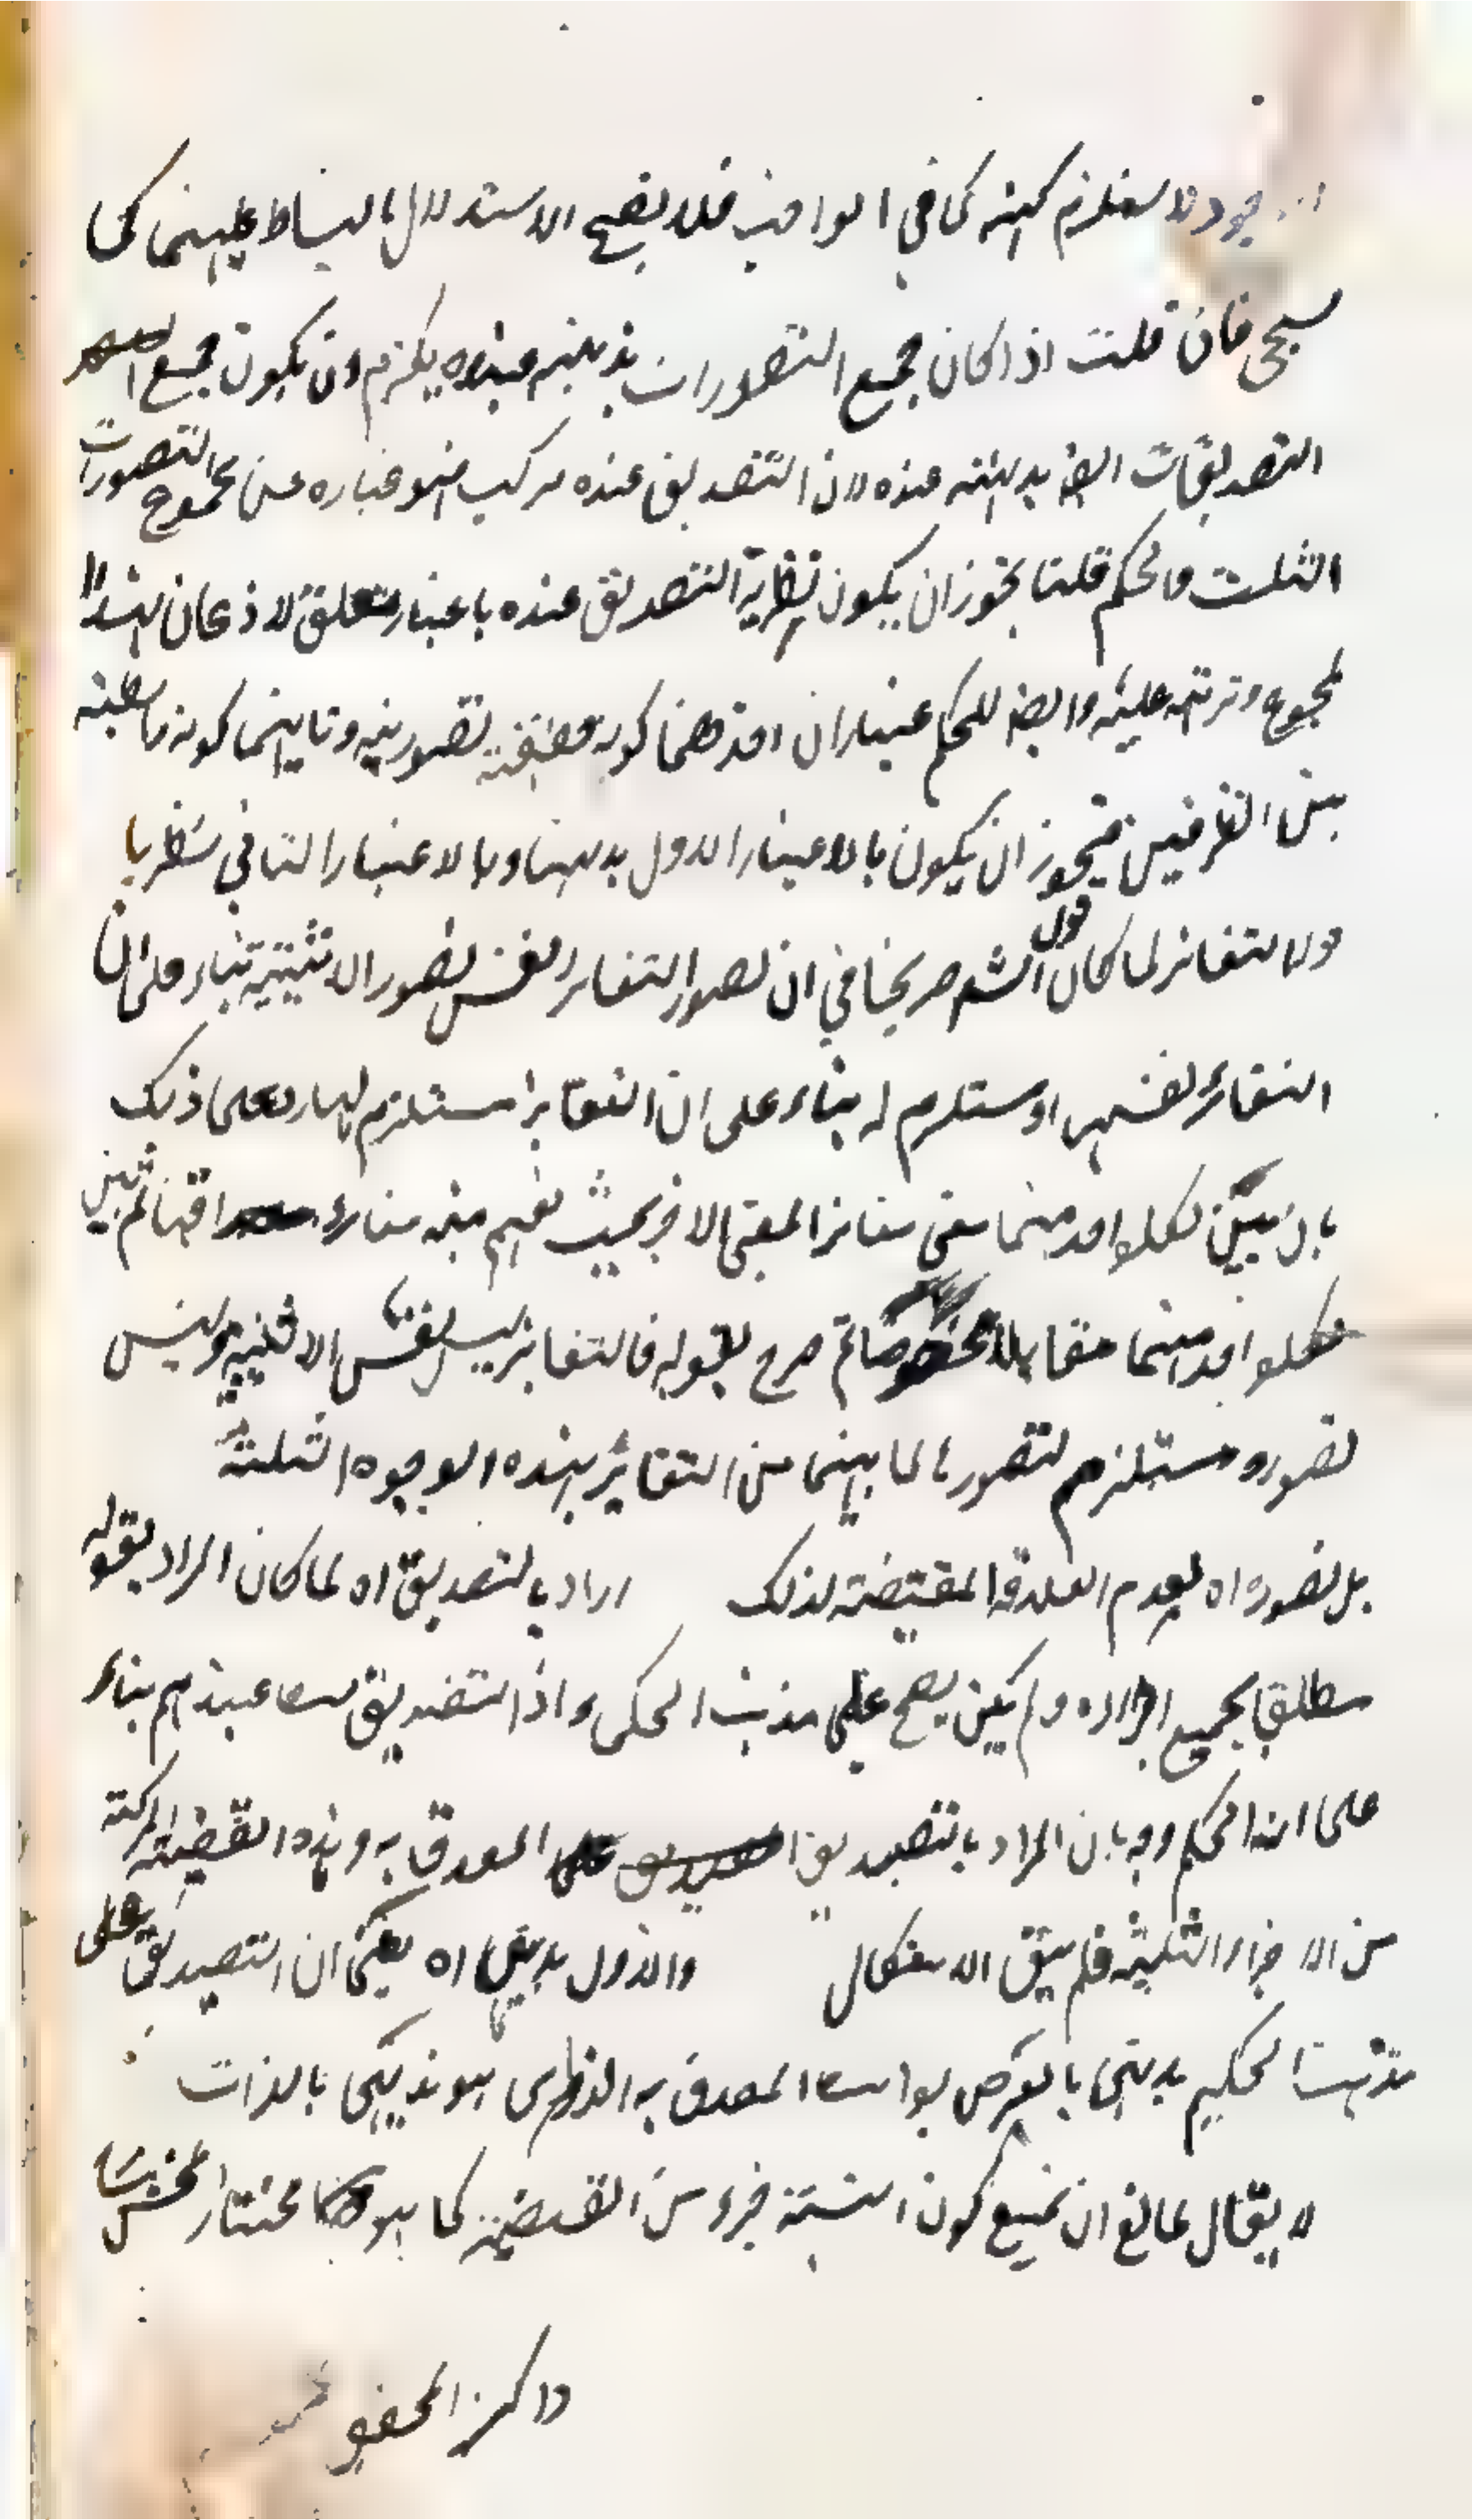 لا يستلزم كسبيته كما في الواجب فلا يصح الاستدلال بالبساطة عليهما كما
سيجئ فان قلت اذا كان جميع التصورات بديهية عنده يلزم ان يكون جميع
التصديقات ايضا بديهية عنده لان التصديق عنده مركب فهو عبارة عن مجموع التصورات
الثلث والحكم قلنا يجوز ان يكون نظرية التصديق عنده باعتبار تعلق الاذعان بهذا
المجموع وترتبه عليه وايضا للحكم اعتباران احدهما كونه حقيقة تصورية وثانيهما كونه رابطة
بين الطرفين فيجوز ان يكون بالاعتبار الاول بديهيا وبالاعتبار الثاني نظريا
قوله التغائر لما كان قول الشم صريحا في ان تصور التغائر نفس تصور الاثنينية بناء على ان
التغائر نفسها او مستلزم له بناء على ان التغائر مستلزم لها على ذلك
بان بين لكل واحد منهما معنى مغائر المعنى الاخر بحيث يفهم منه مغائرة ثم بين
لكل واحد منهما مقابلا ثم صرح بقوله فالتغائر ليس نفس الاثنينية وليس
تصوره مستلزم لتصورها لما بينهما من التغائر بهذه الوجوه الثلثة
بل تصوره اه لعدم العلاقة المقتضية لذلك اراد بالتصديق اه لما كان المراد بقوله
مطلقا بجميع اجزاءه ولم يكن يصح على مذهب الحكماء اذ التصديق بسيط عندهم بناء
على انه الحكم وجه بان المراد بالتصديق المصدق به وهذه القضية المركبة
من الاجزاء الثلثة فلم يبق الاشكال والاول بديهي اه يعني ان التصديق على
مذهب الحكيم بديهي بالعرض بواسطة المصدق به الذي هو بديهي بالذات
لا يقال لمانع ان يمنع كون النسبة جزء من القضية كما هو مختار